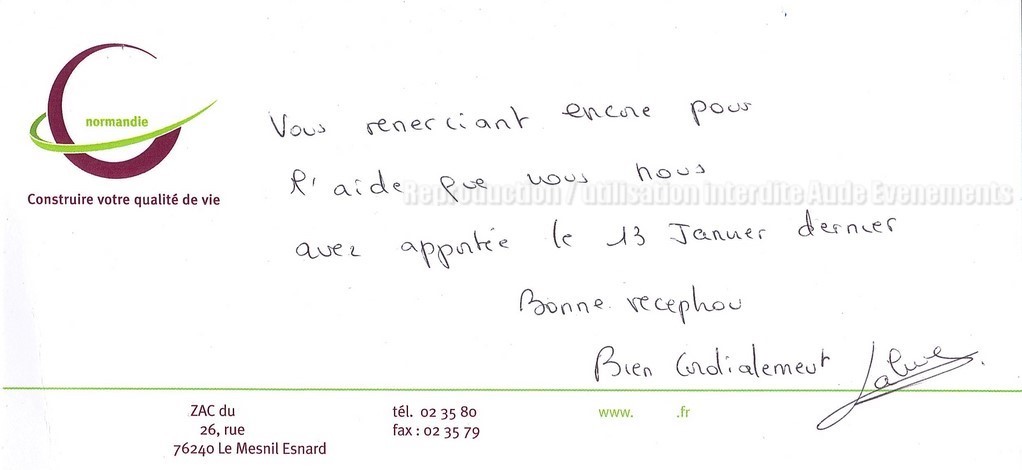 normandie
Construire votre qualité de vie
Vous remerciant encore pour
l'aide que vous nous
Reproduction / utilisation interdite Aude Evenements
avez apportée le 13 Janvier dernier
Bonne reception
Bien Cordialement
ZAC du
26, rue
76240 Le Mesnil Esnard
tél. 02 35 80
fax : 02 35 79
www. .fr